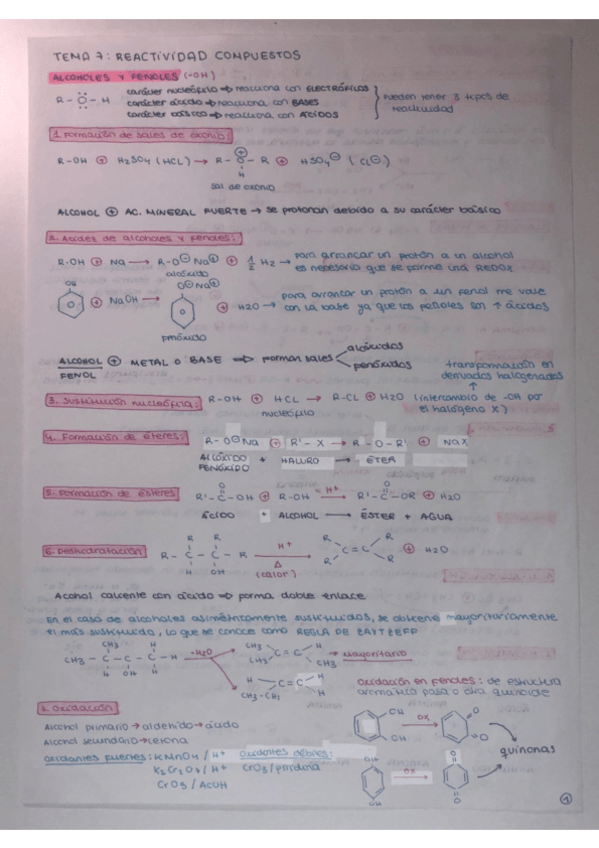 TEMA 7: REACTIVIDAD COMPUESTOS
ALCOHOLES Y FENOLES (-OH)
R - O - H
carácter nucleófilo ⇒ reacciona con ELECTRÓFILOS
carácter ácido ⇒ reacciona con BASES
carácter básico ⇒ reacciona con ÁCIDOS
pueden tener 3 tipos de reactividad
1. Formación de sales de oxonio:
R-OH ⊕ H2SO4 (HCL) → R - O - R ⊕ HSO4⊖ (CL⊖)
H
sal de oxonio
ALCOHOL ⊕ AC. MINERAL FUERTE → se protonan debido a su carácter básico
2. Acidez de alcoholes y fenoles:
R-OH ⊕ Na → R-O⊖ Na⊕ ⊕ 1/2 H2 → para arrancar un protón a un alcohol
es necesario que se forme una REDOX
alcóxido
OH ⊕ NaOH → O⊖Na⊕ ⊕ H2O → para arrancar un protón a un fenol me vale
con la base ya que los fenoles son ↑ ácidos
fenóxido
ALCOHOL ⊕ METAL O BASE ⇒ forman sales
FENOL
alcóxidos
fenóxidos
transformación en
derivados halogenados
3. Sustitución nucleófila:
R-OH ⊕ HCL → R-CL ⊕ H2O (intercambio de -OH por
el halógeno X)
nucleófilo
4. Formación de éteres:
R-O⊖Na ⊕ R'-X → R-O-R' ⊕ NaX
ALCÓXIDO + HALURO → ÉTER
FENÓXIDO
5. Formación de ésteres
R'-C-OH ⊕ R-OH = H+ R'-C-OR ⊕ H2O
O O
ÁCIDO + ALCOHOL → ÉSTER + AGUA
6. Deshidratación
R R
R - C - C - R
H OH
H+
Δ
(calor)
R R
C = C
R R
⊕ H2O
Acohol calcente con ácido ⇒ forma doble enlace
En el caso de alcoholes asimétricamente sustituidos, se obtiene mayoritariamente
el más sustituido, lo que se conoce como REGLA DE ZAYTZEFF
CH3 H
CH3 - C - C - C - H
H OH H
-H2O
CH3 H
C = C
CH3 CH3
→ Mayoritario
H H
C = C
CH3-CH3 H
Oxidación en fenoles: de estructura
aromática pasa a otra quinoide
7. Oxidación
Alcohol primario → aldehido → ácido
Alcohol secundario → cetona
Oxidantes fuertes: KMnO4 / H+
K2Cr2O7 / H+
CrO3 / AcOH
Oxidantes débiles:
CrO3 / piridina
OH
OH
OX
O
O
quinonas
OH
OH
OX
O
O
1